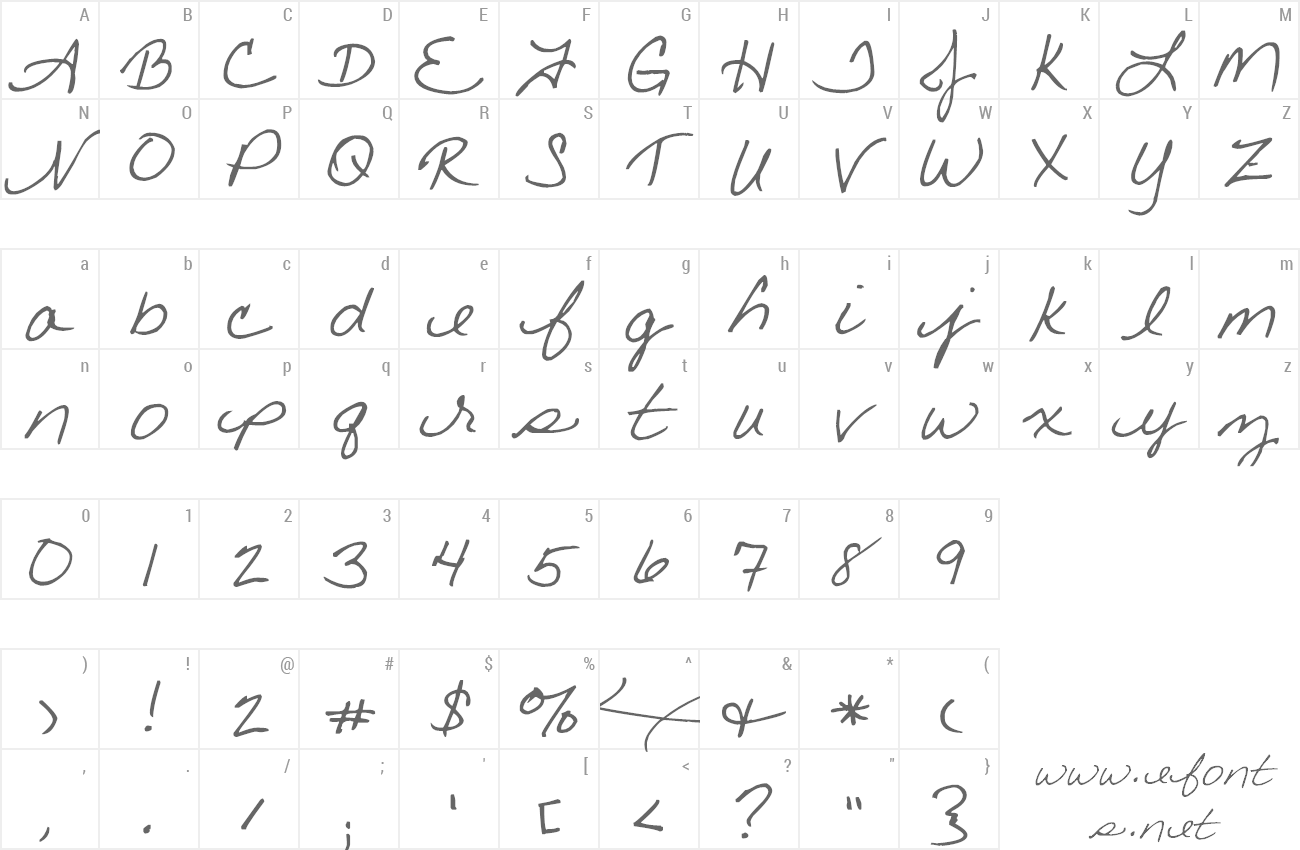 A B C D E F G H I J K L M
A B C D E F G H I J K L M
N O P Q R S T U V W X Y Z
N O P Q R S T U V W X Y Z
a b c d e f g h i j k l m
a b c d e f g h i j k l m
n o p q r s t u v w x y z
n o p q r s t u v w x y z
0 1 2 3 4 5 6 7 8 9
0 1 2 3 4 5 6 7 8 9
) ! @ # $ % ^ & * (
) ! 2 # $ % & * (
, . / ; ' [ < ? " }
, . / ; ' [ < ? " }
www.efont
s.net